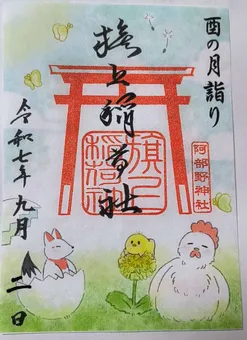 酉の月詣り
旗上稲荷社
旗上
稲荷社
阿部野神社
令和七年九月二日